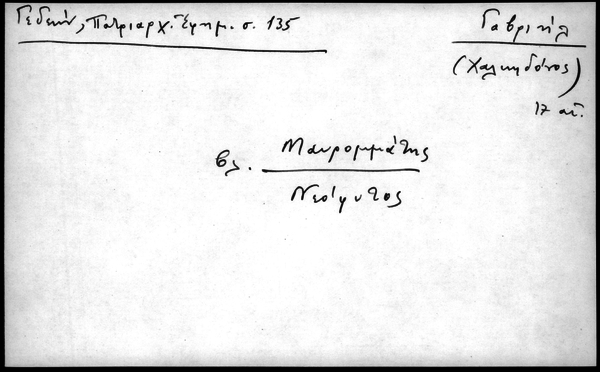 Γεδεών, Πατριαρχ. Ἐφημ. σ. 135
Γαβριήλ
(Χαλκηδόνος)
17 αἰ.
βλ. Μαυρομμάτης
Νεόφυτος